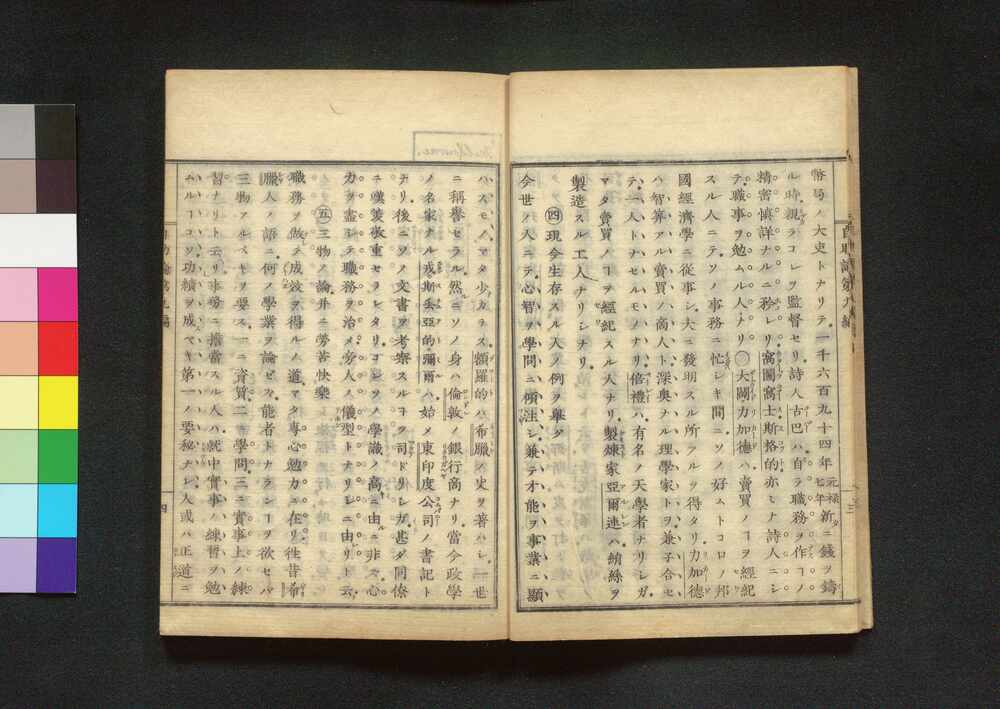 幣局ノ大吏トナリテ一千六百九十四年元禄七年新ニ錢ヲ鑄
ル時親ラコレヲ監督セリ詩人古巴ハ自ラ職務ヲ作コノ
精密慎詳ナルニ務レリ窩圖窩士斯格的亦ミナ詩人ニシ
テ職事ヲ勉ムル人ナリ〇大闢力加德ハ賣買ノヿヲ經紀
スル人ニテソノ事務ニ忙シキ間ニソノ好ムトコロノ邦
國經濟學ニ從事シ大ニ發明スル所アルヲ得タリ加德
ハ智算アル賣買ノ商人ト深奥ナル理學家トヲ兼子合セ
テ一人トナセルモノナリ倍禮ハ有名ノ天學者ナリシガ
マタ賣買ノヿヲ經紀スル人ナリ製煉家亞爾連ハ絹絲ヲ
製造スル工人ナリシナリ
㊃現今生存スル人ノ例ヲ擧ク
今世ノ人ニテ心智ヲ學問ニ傾注シ兼テ才能ヲ事業ニ顯
ハスモノマタ少カラス額羅的ハ希臘ノ史ヲ著ハシ一世
ニ稱譽セラル然ニソノ身ハ倫敦ノ銀行商ナリ當今政學
ノ名家ナル戎斯丢亞的彌爾ハ始メ東印度公司ノ書記ト
ナリ後ニソノ文書ヲ考察スルヿヲ司ドリシガ甚ダ同僚
ニ嘆羨敬重セラレタリコレソノ學識ノ高ニ由ニ非ズ心
力ヲ盡シテ職務ヲ治メ旁人ノ儀型トナリシニ由リト云
㊄三物ノ論并ニ勞苦快樂
職務ヲ做テ成效ヲ得ルノ道マタ專心勉力ニ在リ徃昔希
臘人ノ語ニ何ノ學業ヲ論ゼズ能者トナランヿヲ欲セバ
三物アルベキヲ要ス一ニ資質二ニ學問三ニ實事上ノ練
習ナリト云リ事務ニ擔當スル人ハ就中實事ノ練哲ヲ勉
ムルヿコソ功績ヲ成ベキ第一ノ要秘ナレ人或ハ正道ニ
四